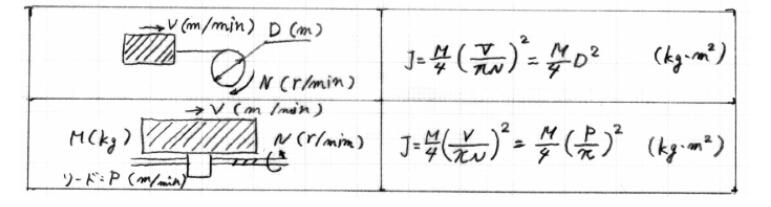 V (m/min)
D (m)
N (r/min)
J = M/4 (V/πN)² = M/4 D² (kg·m²)
V (m/min)
M (kg)
N (r/min)
リード=P (m/min)
J = M/4 (V/πN)² = M/4 (P/π)² (kg·m²)